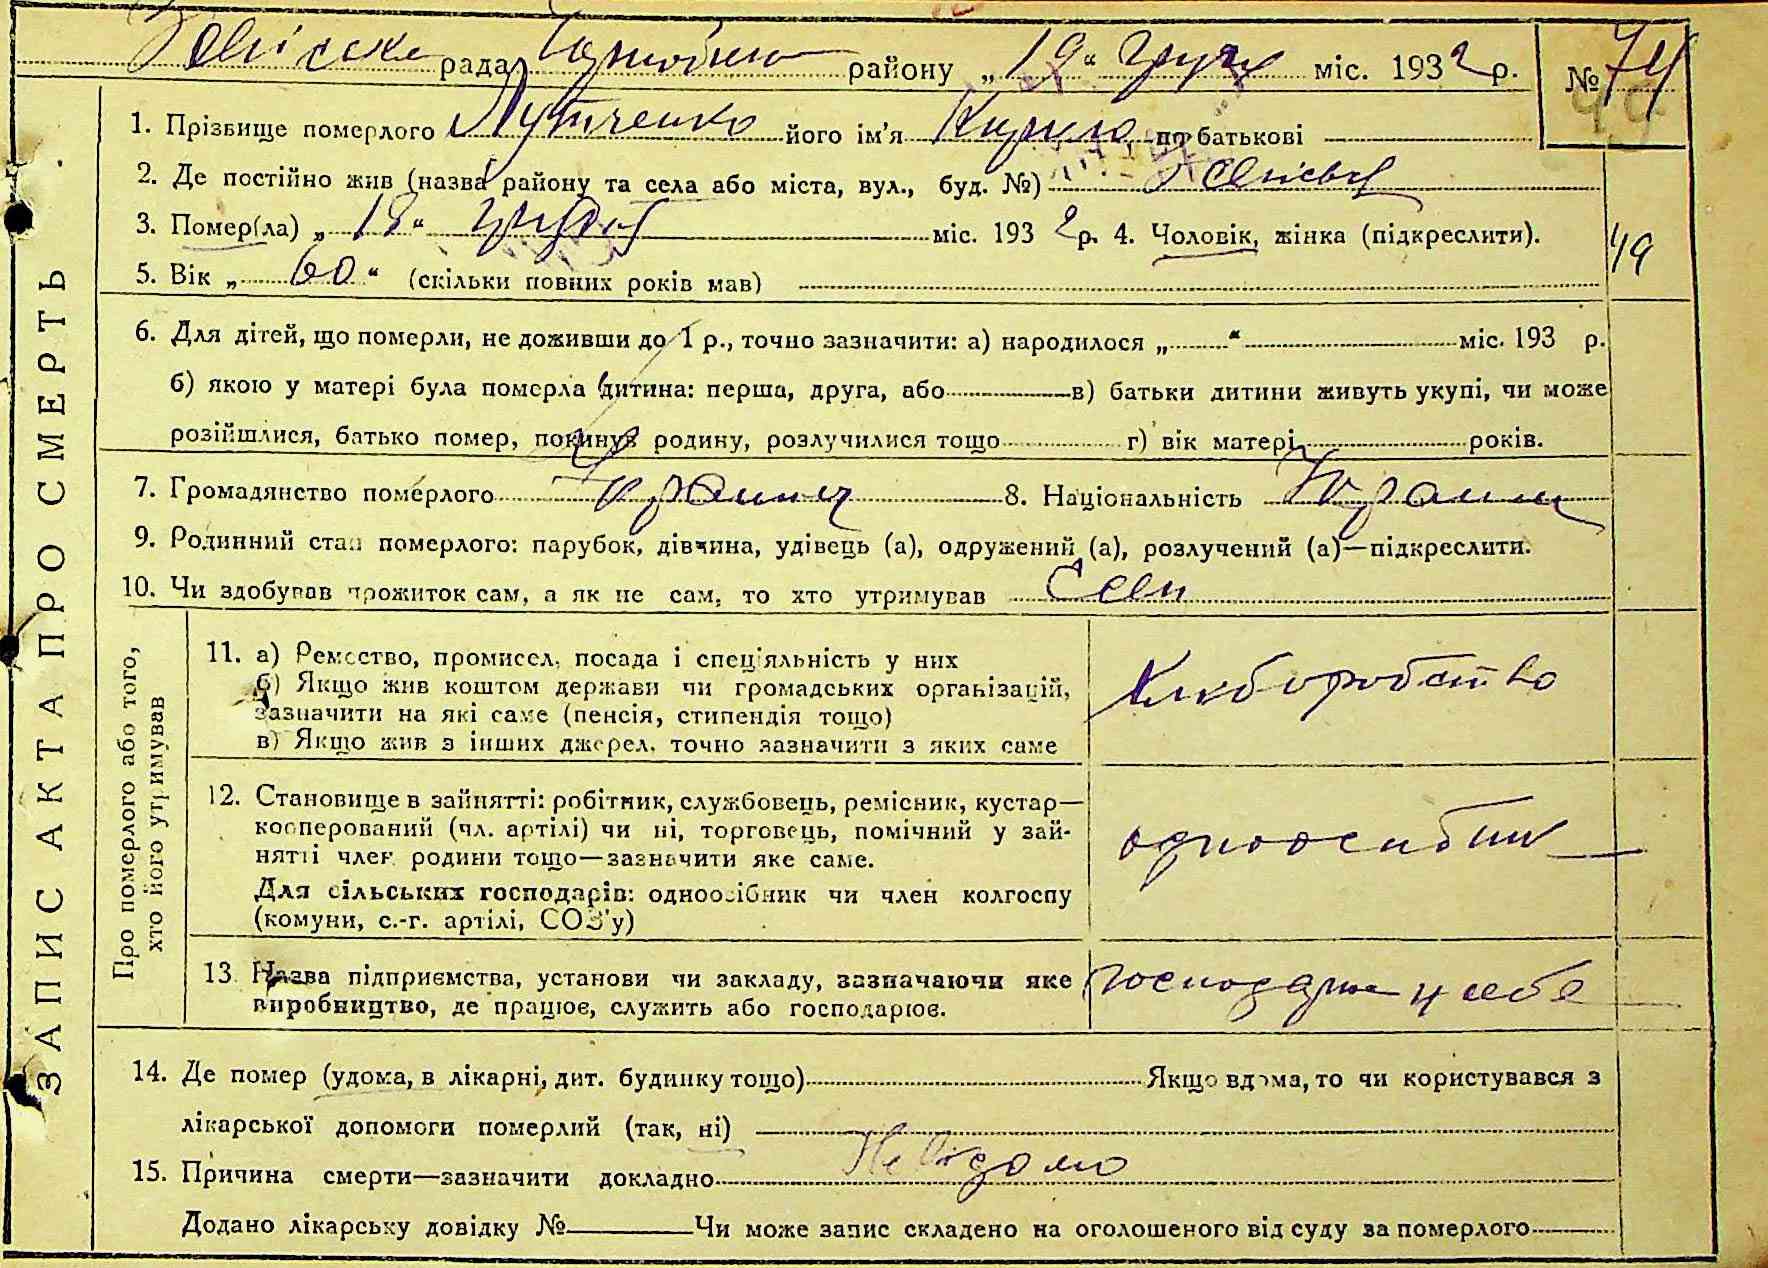 рада району „19“ груд міс. 1932 р. № 74
49
1. Прізвище померлого його ім’я Кирило по батькові
2. Де постійно жив (назва району та села або міста, вул., буд. №)
3. Помер(ла) „18“ грудня міс. 1932 р. 4. Чоловік, жінка (підкреслити).
49
5. Вік „60“ (скільки повних років мав)
6. Для дітей, що померли, не доживши до 1 р., точно зазначити: а) народилося „ “ міс. 193 р.
б) якою у матері була померла дитина: перша, друга, або в) батьки дитини живуть укупі, чи може
розійшлися, батько помер, покинув родину, розлучилися тощо г) вік матері років.
7. Громадянство померлого 8. Національність
9. Родинний стан померлого: парубок, дівчина, удівець (а), одружений (а), розлучений (а)—підкреслити.
10. Чи здобував прожиток сам, а як не сам, то хто утримував Сам
ЗАПИС АКТА ПРО СМЕРТЬ.
Про померлого або того,
хто його утримував
11. а) Ремество, промисел, посада і спеціяльність у них
б) Якщо жив коштом держави чи громадських організацій,
зазначити на які саме (пенсія, стипендія тощо)
в) Якщо жив з інших джерел, точно зазначити з яких саме
Хліборобство
12. Становище в зайнятті: робітник, службовець, ремісник, кустар—
кооперований (чл. артілі) чи ні, торговець, помічний у зай-
нятті член родини тощо—зазначити яке саме.
Для сільських господарів: одноосібник чи член колгоспу
(комуни, с.-г. артілі, СОЗ’у)
одноосибник
13. Назва підприємства, установи чи закладу, зазначаючи яке
виробництво, де працює, служить або господарює.
у себе
14. Де помер (удома, в лікарні, дит. будинку тощо) Якщо вдома, то чи користувався з
лікарської допомоги померлий (так, ні)
15. Причина смерти—зазначити докладно Невідомо
Додано лікарську довідку № Чи може запис складено на оголошеного від суду за померлого